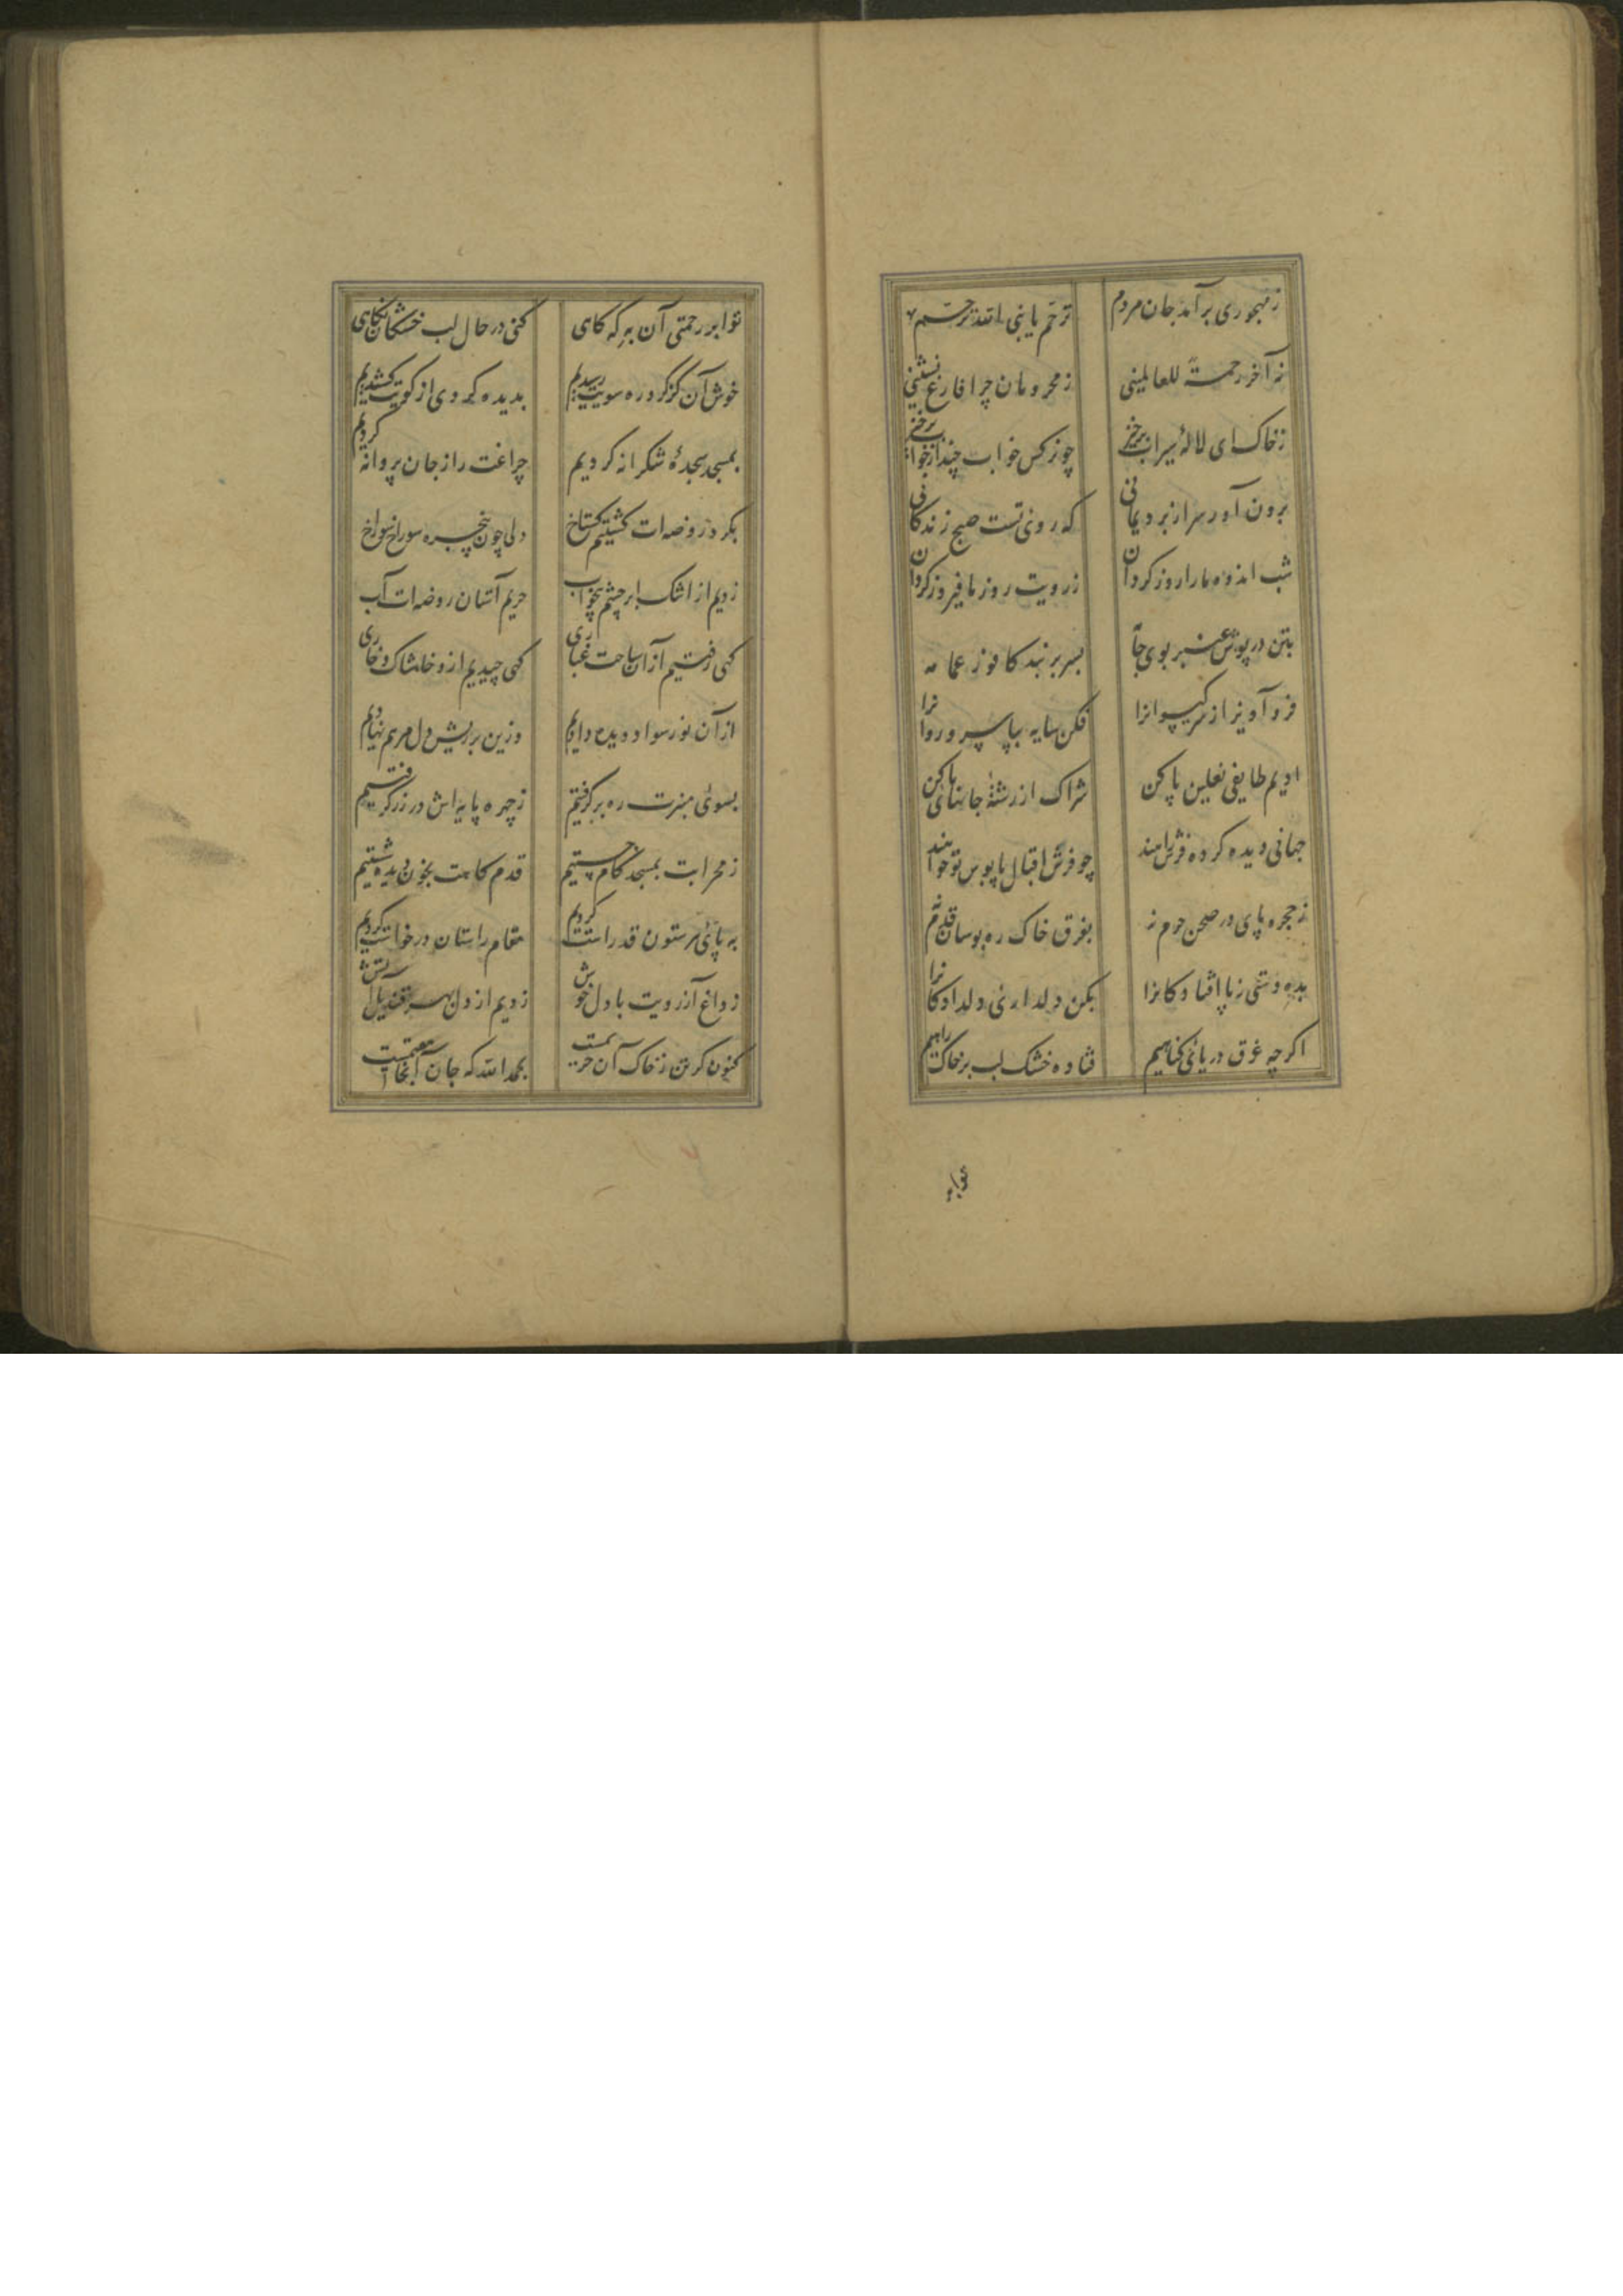 زمهجوری برآمد جان مردم ترحم یا نبی الله ترحم
نه آخر رحمة للعالمینی زمحرومان چرا فارغ نشینی
زخاک ای لالهٔ سیراب برخیز چو نرکس خواب چند از خواب برخیز
برون آور سر از برد یمانی که روی تست صبح زندکانی
شب اندوه ما را روز کردان زرویت روز ما فیروز کردان
بتن در پوش عنبر بوی جامه بسر بربند کافوری عمامه
فرو آویز از سر کیسوانرا فکن سایه بپا سرو روانرا
ادیم طایفی نعلین پا کن شراک از رشتهٔ جانهای ما کن
جهانی دیده کرده فرش راهند چو فرش اقبال پابوس تو خواهند
زحجره پای در صحن حرم نه بفرق خاک ره بوسان قدم نه
بده دستی زپا افتادکانرا بکن دلداریی دلدادکانرا
اکرچه غرق دریای کناهیم فتاده خشک لب بر خاک راهیم
تو ابر رحمتی آن به که کاهی کنی در حال لب خشکان نکاهی
خوش آن کز کرد ره سویت رسیدیم بدیده کردی از کویت کشیدیم
بمسجد سجدهٔ شکرانه کردیم چراغت را زجان پروانه کردیم
بکرد روضه‌ات کشتیم کستاخ دلی چون پنجره سوراخ سوراخ
زدیم از اشک ابر چشم بیخواب حریم آستان روضه‌ات آب
کهی رفتیم از آن ساحت غباری کهی چیدیم ازو خاشاک و خاری
از آن نور سواد دیده دادیم وزین بر ریش دل مرهم نهادیم
بسوی منبرت ره برکرفتیم زچهره پایه‌اش در زر کرفتیم
زمحرابت بمسجد کام جستیم قدم کاهت بخون دیده شستیم
به پای هر ستون قد راست کردیم مقام راستان درخواست کردیم
زداغ آرزویت با دل خوش زدیم از دل بهر قندیل آتش
کنون کر تن نه خاک آن حریمست بحمدالله که جان آنجا مقیمست